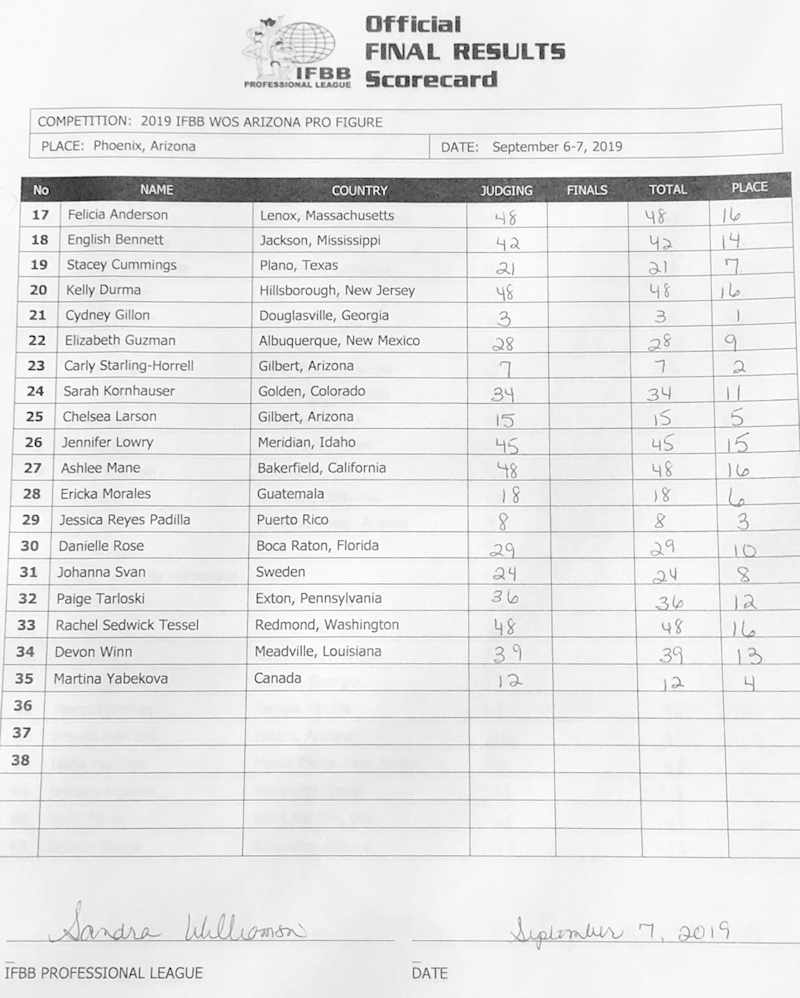 Official
FINAL RESULTS
Scorecard
IFBB
PROFESSIONAL LEAGUE
COMPETITION: 2019 IFBB WOS ARIZONA PRO FIGURE
PLACE: Phoenix, Arizona DATE: September 6-7, 2019
No NAME COUNTRY JUDGING FINALS TOTAL PLACE
17 Felicia Anderson Lenox, Massachusetts 48 48 16
18 English Bennett Jackson, Mississippi 42 42 14
19 Stacey Cummings Plano, Texas 21 21 7
20 Kelly Durma Hillsborough, New Jersey 48 48 16
21 Cydney Gillon Douglasville, Georgia 3 3 1
22 Elizabeth Guzman Albuquerque, New Mexico 28 28 9
23 Carly Starling-Horrell Gilbert, Arizona 7 7 2
24 Sarah Kornhauser Golden, Colorado 34 34 11
25 Chelsea Larson Gilbert, Arizona 15 15 5
26 Jennifer Lowry Meridian, Idaho 45 45 15
27 Ashlee Mane Bakerfield, California 48 48 16
28 Ericka Morales Guatemala 18 18 6
29 Jessica Reyes Padilla Puerto Rico 8 8 3
30 Danielle Rose Boca Raton, Florida 29 29 10
31 Johanna Svan Sweden 24 24 8
32 Paige Tarloski Exton, Pennsylvania 36 36 12
33 Rachel Sedwick Tessel Redmond, Washington 48 48 16
34 Devon Winn Meadville, Louisiana 39 39 13
35 Martina Yabekova Canada 12 12 4
36
37
38
Sandra Williamson September 7, 2019
IFBB PROFESSIONAL LEAGUE DATE